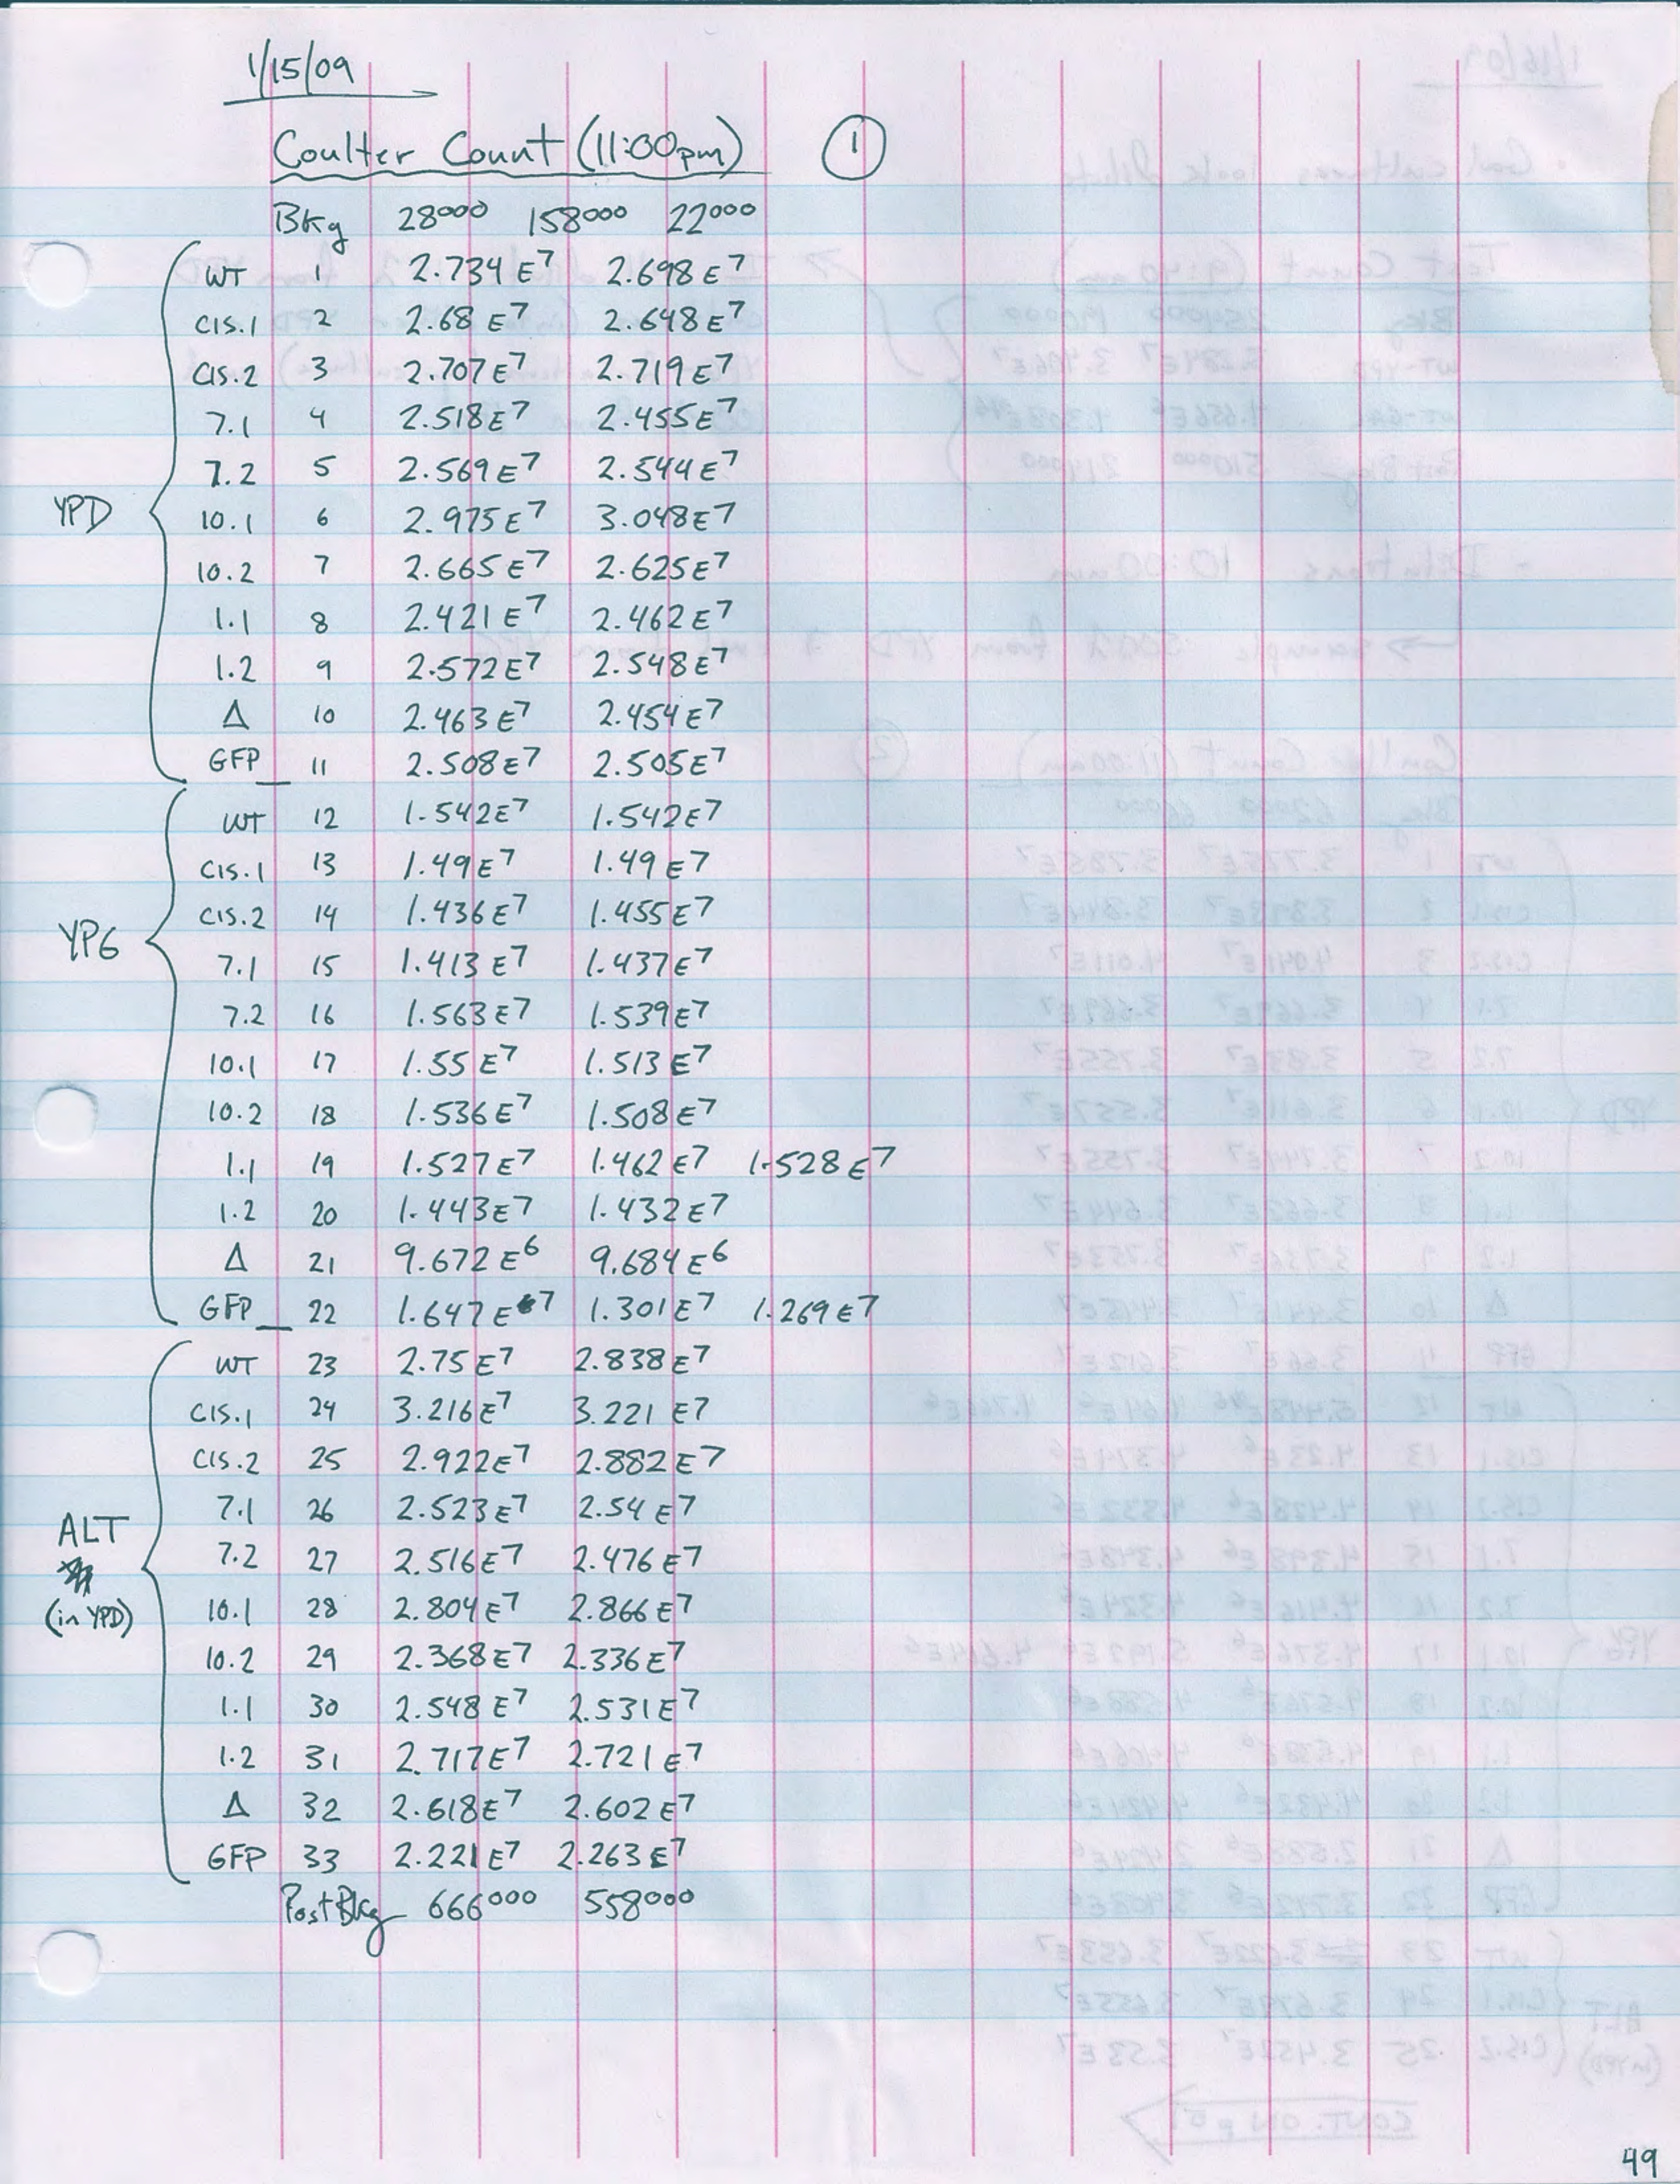 1/15/09
Coulter Count (11:00pm) 1
Bkg 28000 158000 22000
YPD
WT 1 2.734 E7 2.698 E7
CIS.1 2 2.68 E7 2.648 E7
CIS.2 3 2.707 E7 2.719 E7
7.1 4 2.518 E7 2.455 E7
7.2 5 2.569 E7 2.544 E7
10.1 6 2.975 E7 3.048 E7
10.2 7 2.665 E7 2.625 E7
1.1 8 2.421 E7 2.462 E7
1.2 9 2.572 E7 2.548 E7
Δ 10 2.463 E7 2.454 E7
GFP 11 2.508 E7 2.505 E7
YPG
WT 12 1.542 E7 1.542 E7
CIS.1 13 1.49 E7 1.49 E7
CIS.2 14 1.436 E7 1.455 E7
7.1 15 1.413 E7 1.437 E7
7.2 16 1.563 E7 1.539 E7
10.1 17 1.55 E7 1.513 E7
10.2 18 1.536 E7 1.508 E7
1.1 19 1.527 E7 1.462 E7 1.528 E7
1.2 20 1.443 E7 1.432 E7
Δ 21 9.672 E6 9.684 E6
GFP 22 1.647 E7 1.301 E7 1.269 E7
ALT
(in YPD)
WT 23 2.75 E7 2.838 E7
CIS.1 24 3.216 E7 3.221 E7
CIS.2 25 2.922 E7 2.882 E7
7.1 26 2.523 E7 2.54 E7
7.2 27 2.516 E7 2.476 E7
10.1 28 2.804 E7 2.866 E7
10.2 29 2.368 E7 2.336 E7
1.1 30 2.548 E7 2.531 E7
1.2 31 2.717 E7 2.721 E7
Δ 32 2.618 E7 2.602 E7
GFP 33 2.221 E7 2.263 E7
Post Bkg 666000 558000
49